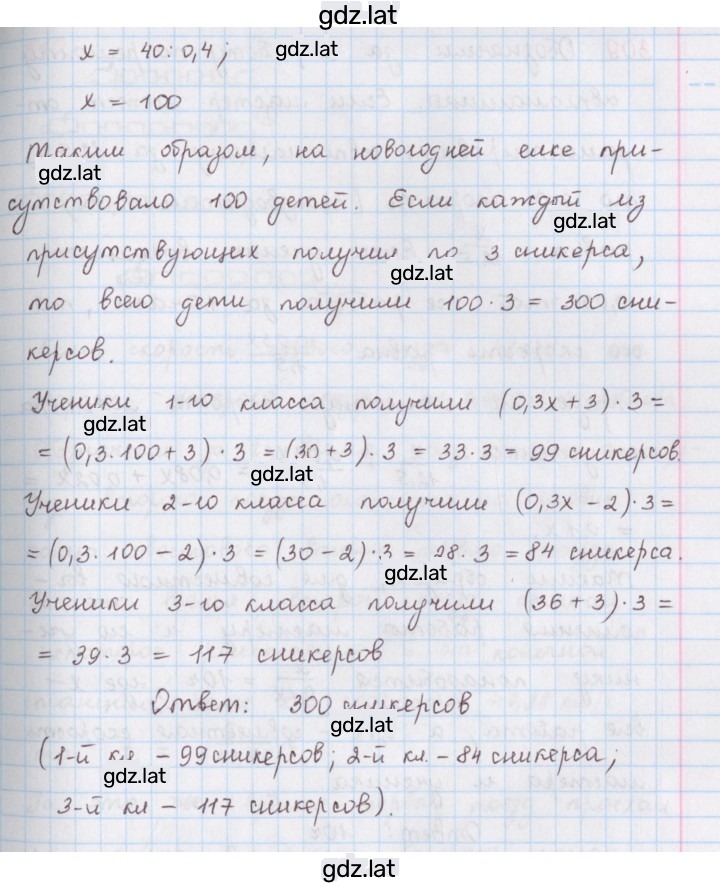 gdz.lat
x = 40 : 0,4;
gdz.lat
x = 100
Таким образом, на новогодней елке при-
gdz.lat
сутствовало 100 детей. Если каждый из
gdz.lat
присутствующих получил по 3 сникерса,
gdz.lat
то всего дети получили 100 · 3 = 300 сни-
керсов.
Ученики 1-го класса получили (0,3x + 3) · 3 =
gdz.lat
= (0,3 · 100 + 3) · 3 = (30 + 3) · 3 = 33 · 3 = 99 сникерсов.
gdz.lat
Ученики 2-го класса получили (0,3x − 2) · 3 =
= (0,3 · 100 − 2) · 3 = (30 − 2) · 3 = 28 · 3 = 84 сникерса.
gdz.lat
Ученики 3-го класса получили (36 + 3) · 3 =
= 39 · 3 = 117 сникерсов
Ответ: 300 сникерсов
gdz.lat
(1-й кл – 99 сникерсов; 2-й кл. – 84 сникерса;
gdz.lat
3-й кл – 117 сникерсов).
gdz.lat